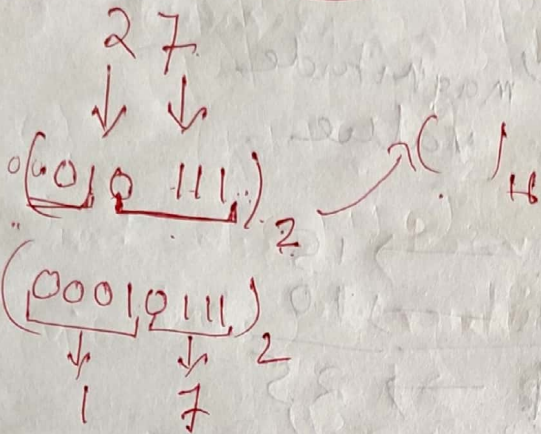 2 7
(010 111)2 → ( )16
(00010111)2
1 7